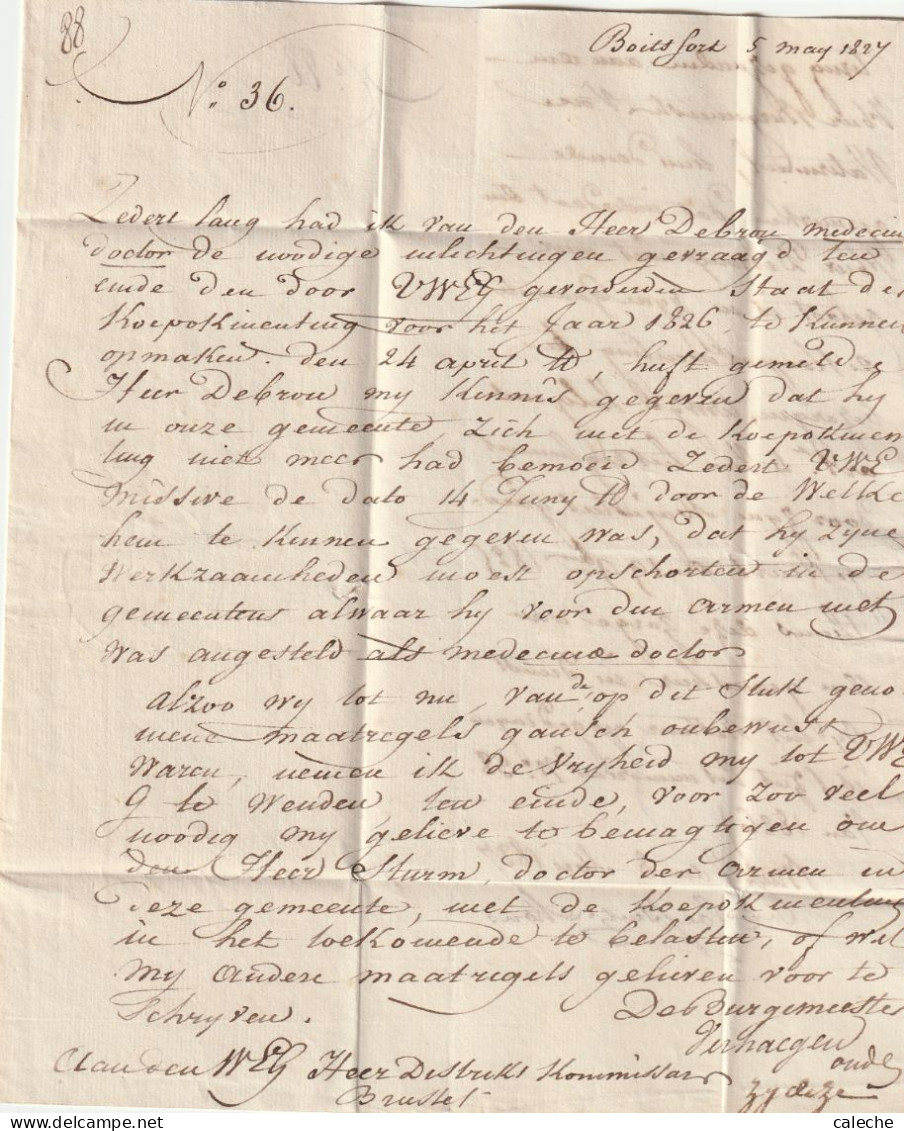 88
Boitsfort 5 may 1827
N.o 36.
Zedert lang had ik van den Heer Debrou medecin
doctor de noodige inlichtingen gevraagd ten
einde den door UWEG gevorderden Staat der
Koepokinenting voor het Jaar 1826, te Kunnen
opmaken. den 24 april ll, heeft gemelde
Heer Debrou my Kennis gegeven dat hy
in onze gemeente, zich met de Koepokinen
ting niet meer had bemoeid Zedert UWE
missive de dato 14 Juny ll door de Welke
hem te Kennen gegeven was, dat hy zyne
Werkzaamheden moest opschorten in de
gemeentens alwaar hy voor den armen niet
was angesteld als medecine doctor
alzoo wy tot nu, van de op dit Stuk geno
mene maatregels gansch onbewust
Waren, nemen ik de Vryheid my tot UWE
G te Wenden ten einde, voor zoo veel
noodig my gelieve te bemagtigen om
den Heer Sturm, doctor der armen in
deze gemeente, met de Koepokinenting
in het toekomende te belasten, of wel
my andere maatregels gelieven voor te
Schryven.
De burgemeester
Verhaegen
oude
Aan den WEG Heer Distrikt Kommissar
Brussel
caleche